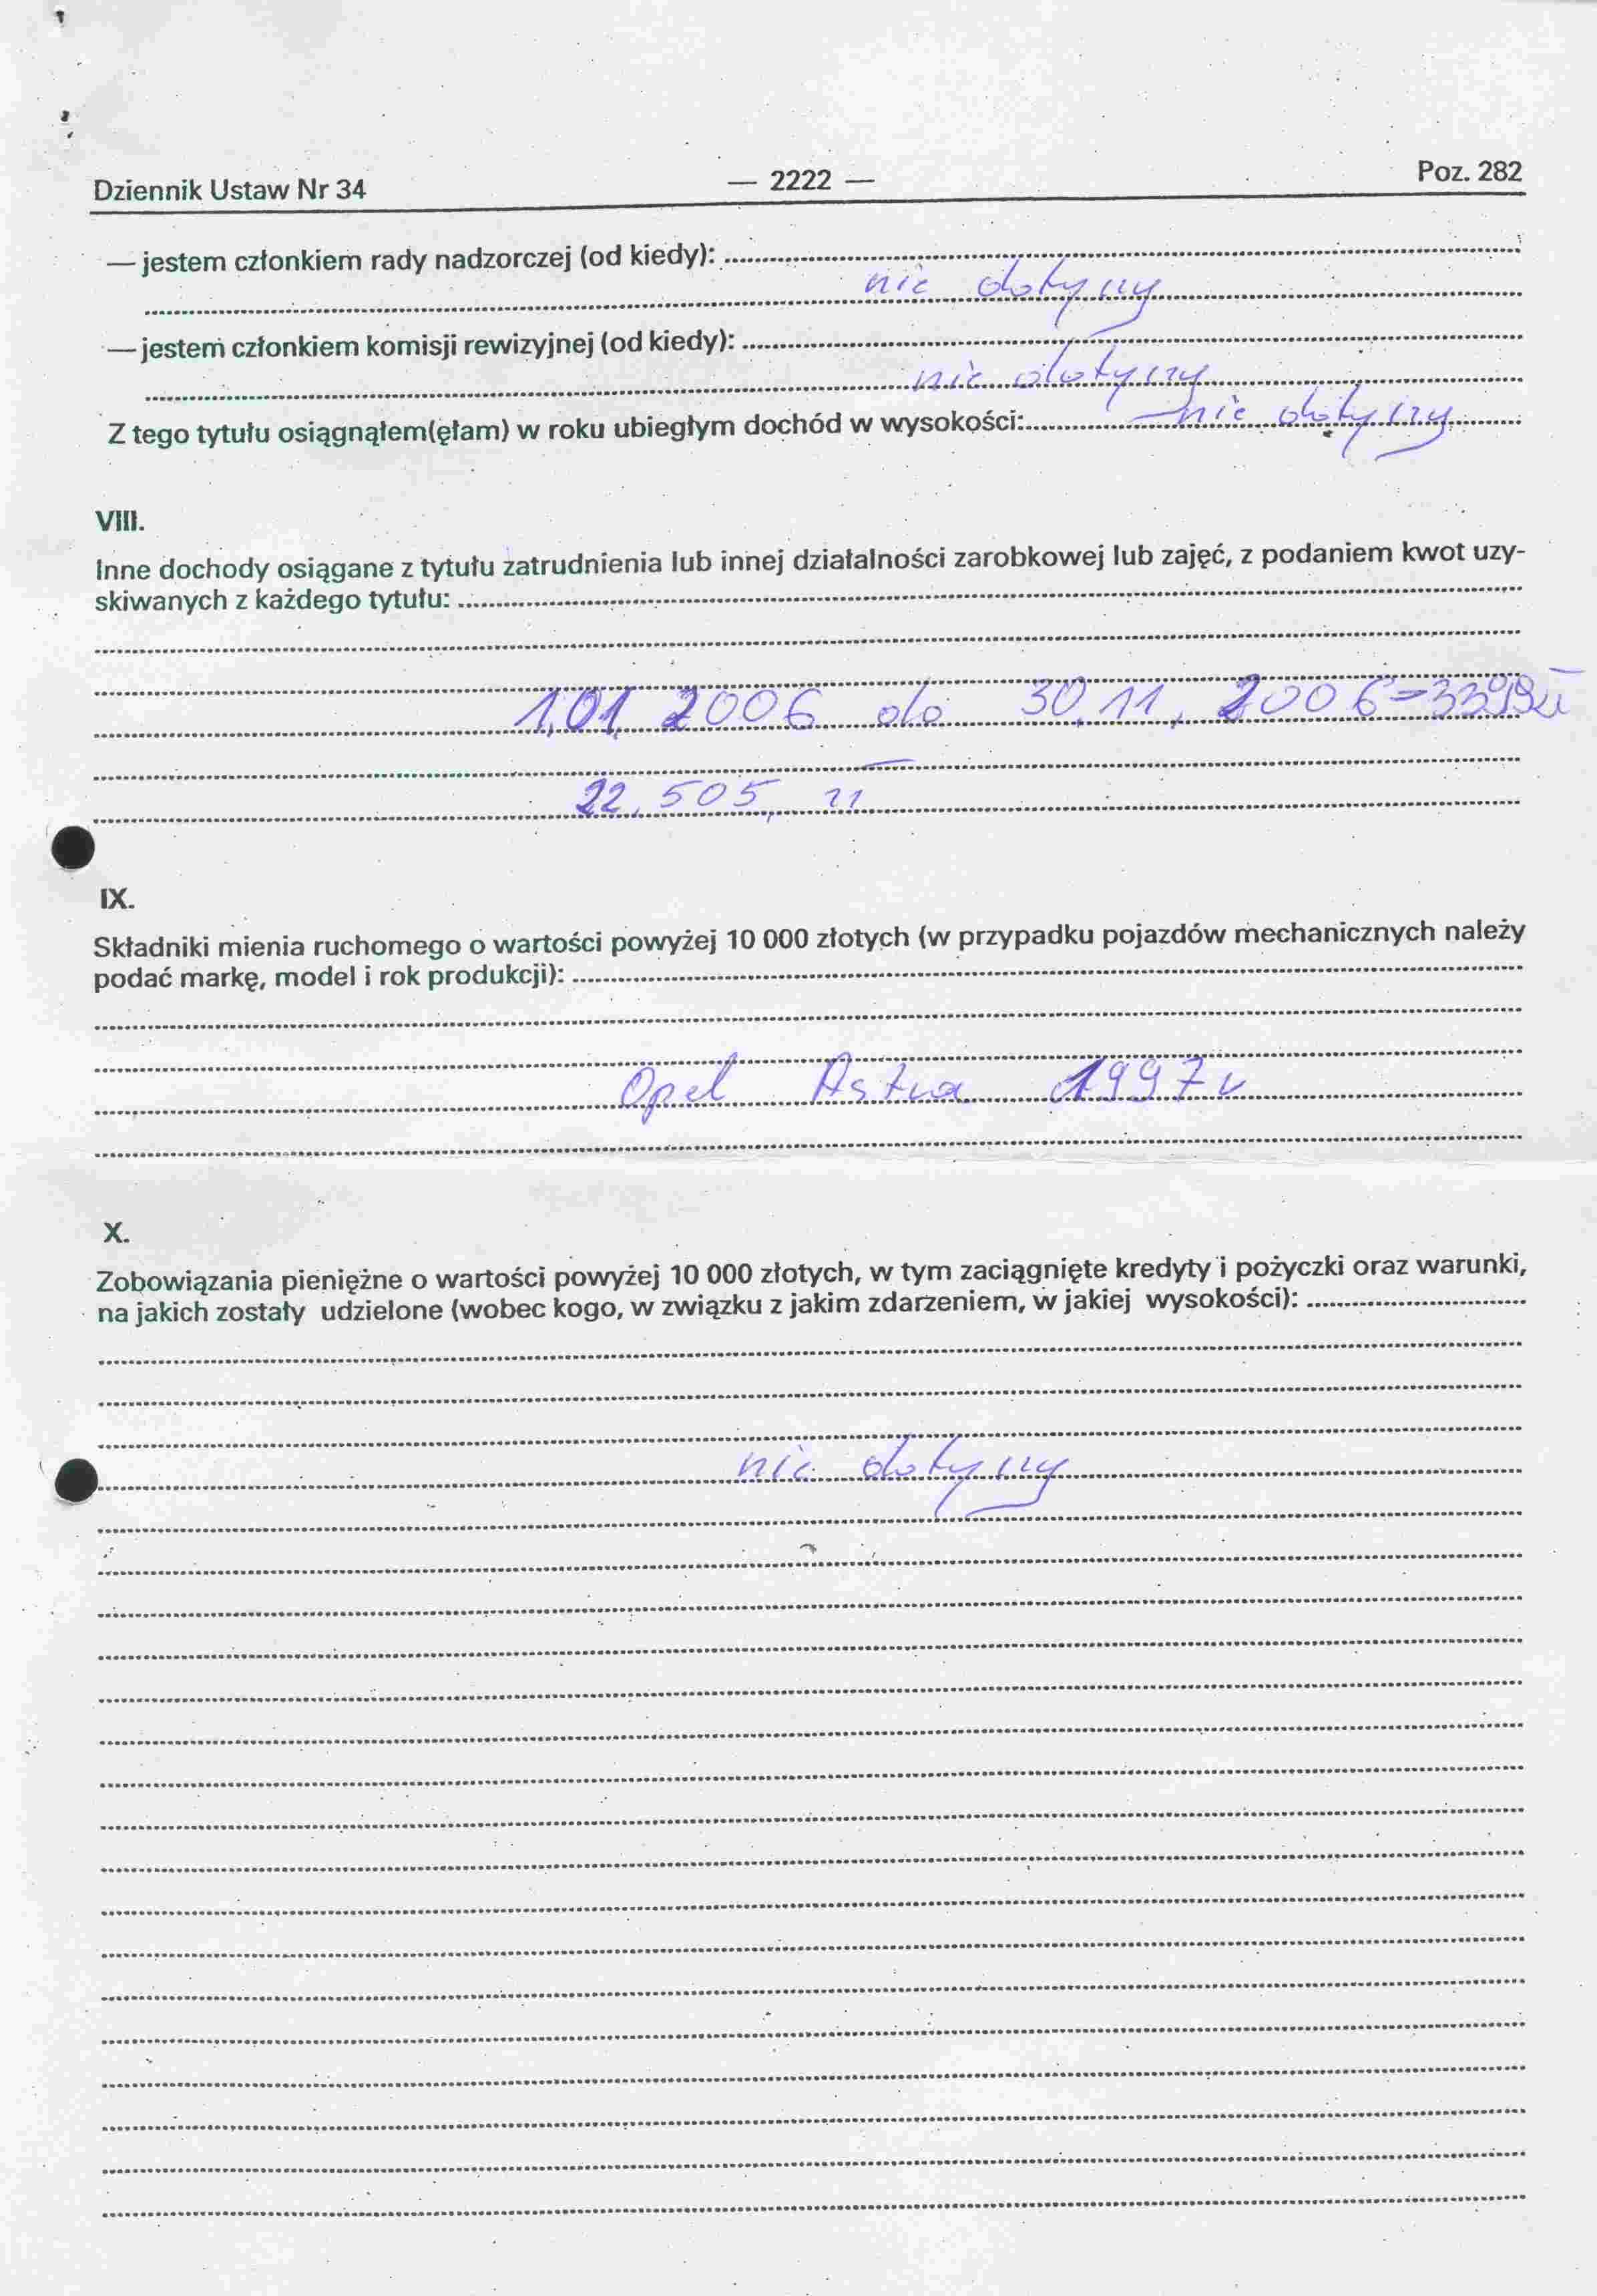 Dziennik Ustaw Nr 34 — 2222 — Poz. 282
— jestem członkiem rady nadzorczej (od kiedy):
nie dotyczy
— jestem członkiem komisji rewizyjnej (od kiedy):
nie dotyczy
Z tego tytułu osiągnąłem(ęłam) w roku ubiegłym dochód w wysokości: nie dotyczy
VIII.
Inne dochody osiągane z tytułu zatrudnienia lub innej działalności zarobkowej lub zajęć, z podaniem kwot uzy-
skiwanych z każdego tytułu:
1,01, 2006 do 30,11, 2006 =
22.505, zł
IX.
Składniki mienia ruchomego o wartości powyżej 10 000 złotych (w przypadku pojazdów mechanicznych należy
podać markę, model i rok produkcji):
Opel Astra 1997r
X.
Zobowiązania pieniężne o wartości powyżej 10 000 złotych, w tym zaciągnięte kredyty i pożyczki oraz warunki,
na jakich zostały udzielone (wobec kogo, w związku z jakim zdarzeniem, w jakiej wysokości):
nie dotyczy